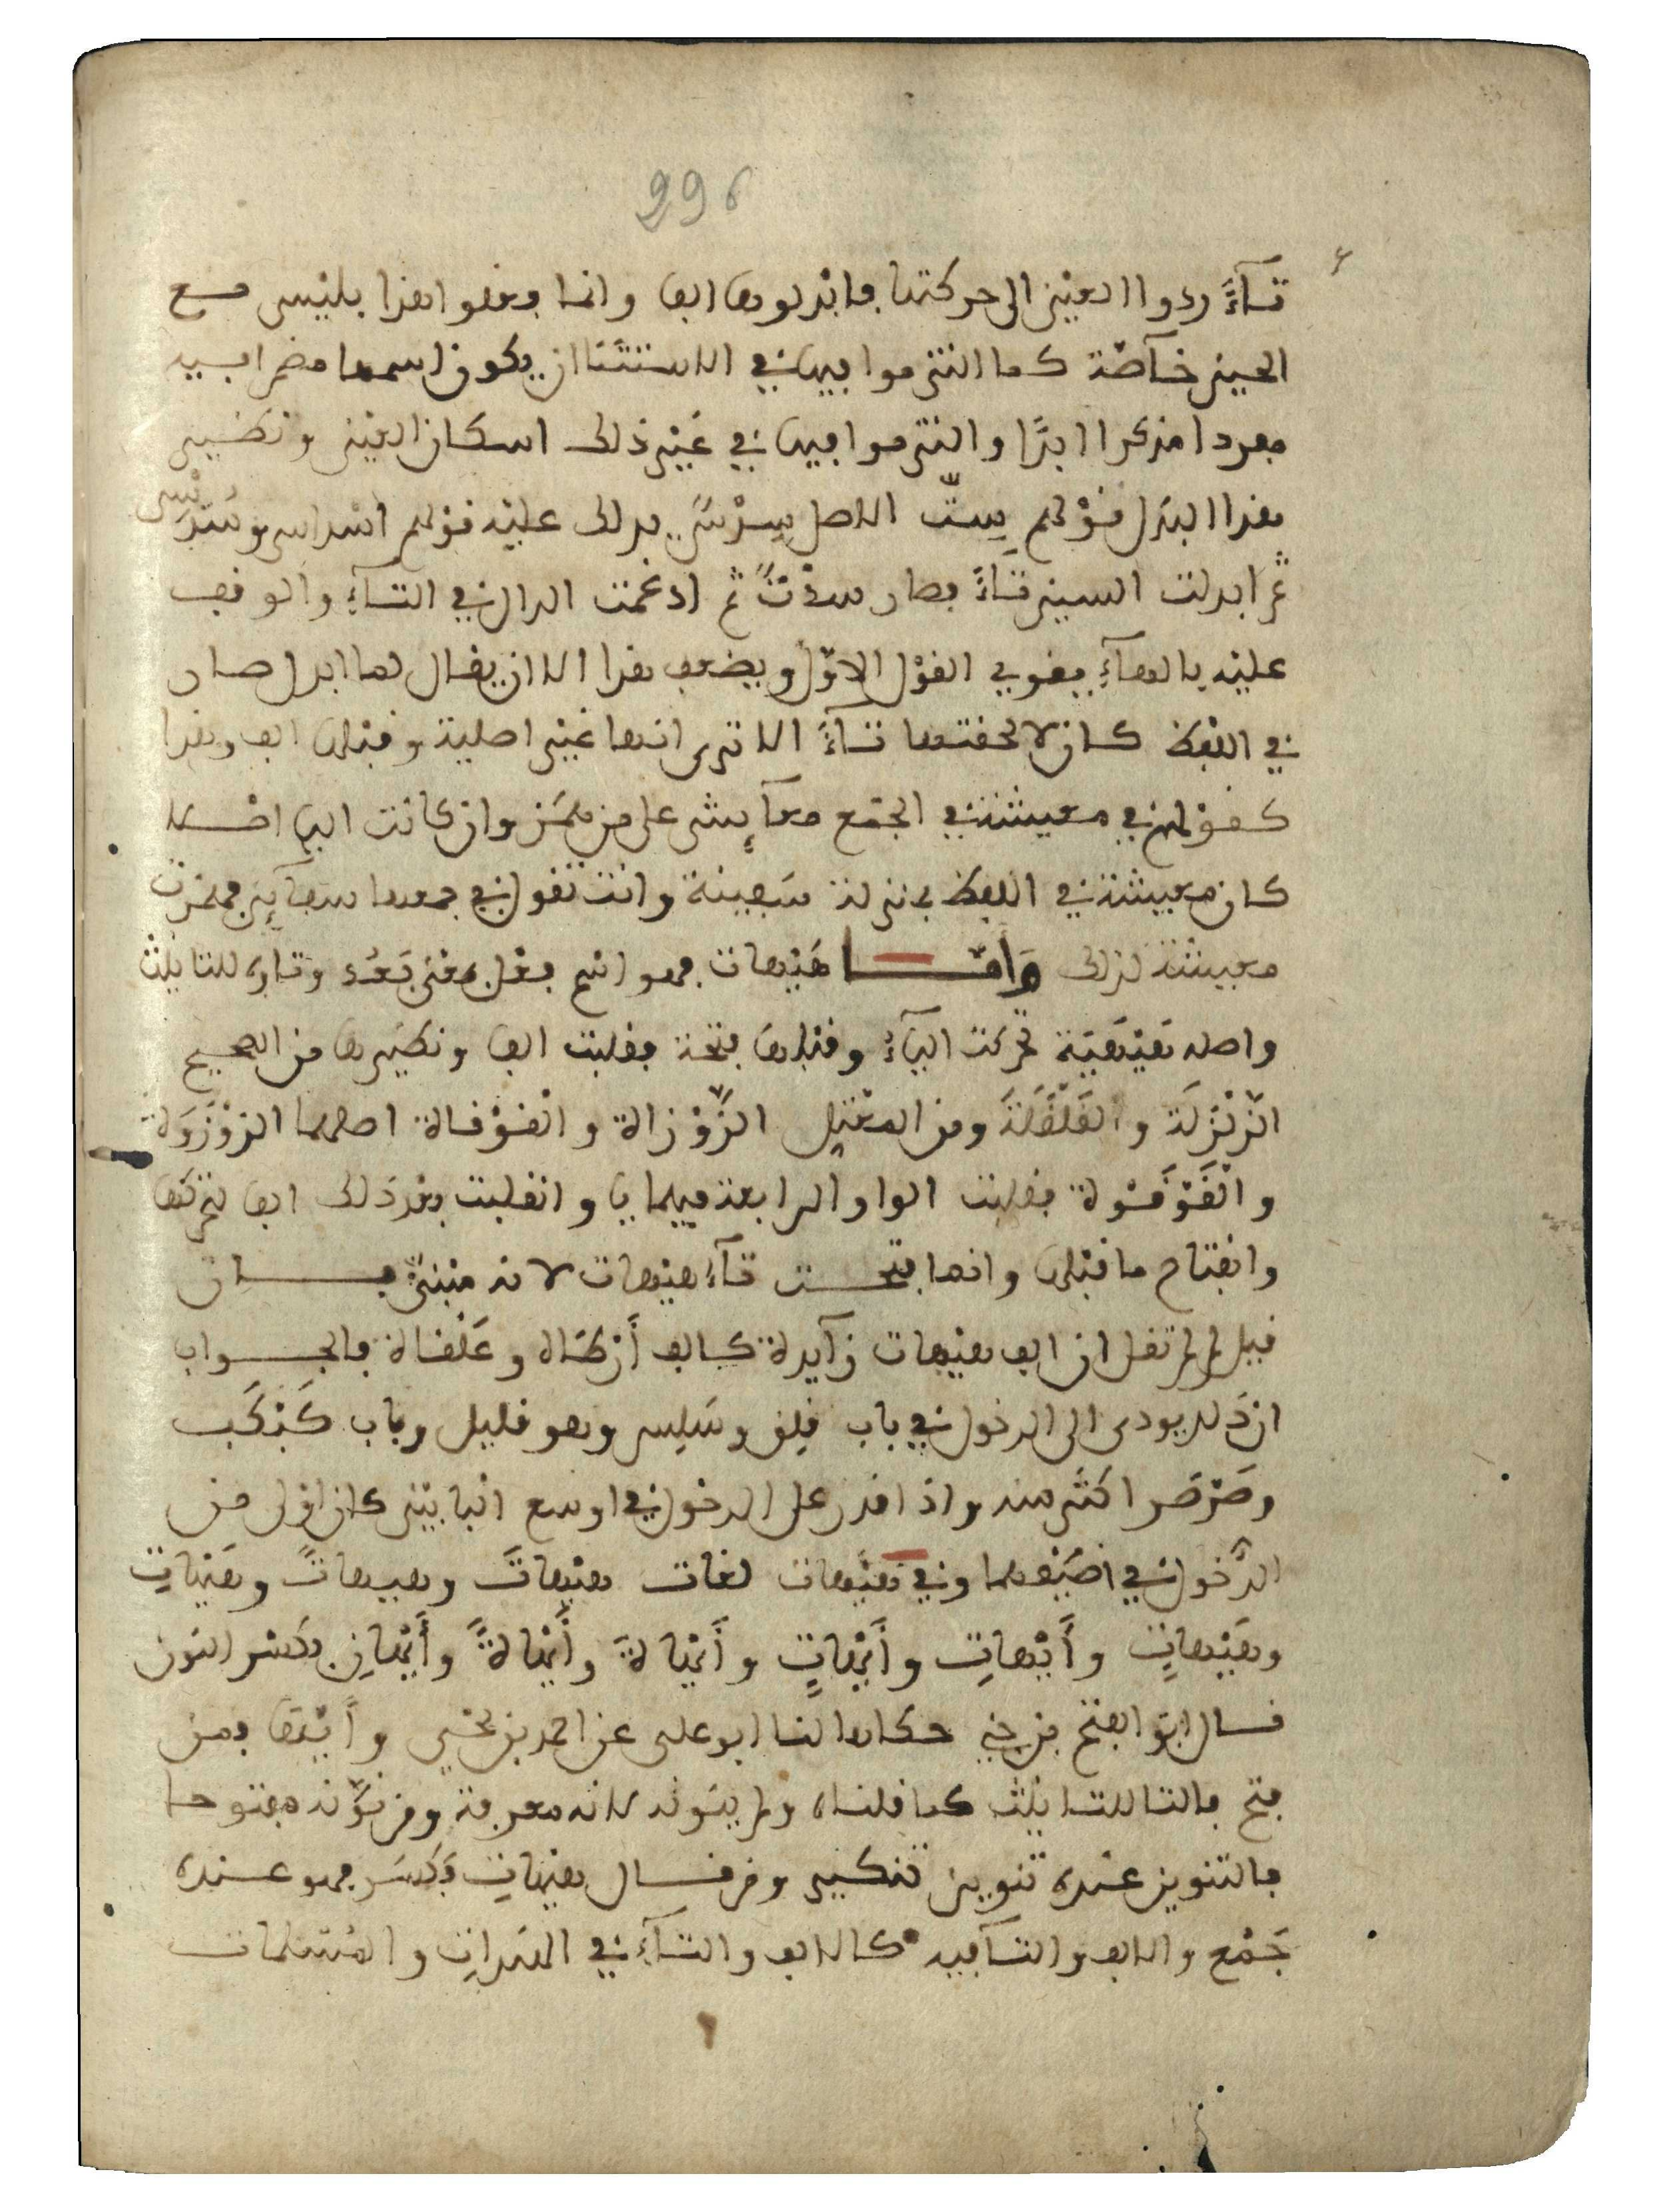 996
تآءً ردوا العين الى حركتها فابدلوها الفا وانما فعلوا هذا بليس مع
الحين خآصّة كما التزموا فيها في الاستثنا ان يكون اسمها مضمرا فيه
مفردا مذكرا ابدًا والتزموا فيها في غير ذلك اسكان العين ونظير
هذا البدل قولهم سِتّ الاصل سِدْس يدلك عليه قولهم اسداس وسُدَيْس
ثم ابدلت السين تآءً فصار سدْت ثم ادغمت الدال في التآء والوقف
عليه بالهآء يقوي القول الاوّل ويضعف هذا الا ان يقال لما ابدل صار
في اللفظ كان لالحقتها تآءً الا ترى انها غير اصلية وقبلها الف وهذا
كقولهم في معيشة في الجمع معآئش على من همز وان كانت اليا اصلا
كان معيشة في اللفظ بمنزلة سَفينة وانت تقول في جمعها سفآئن فهمزت
معيشة لذلك وَأمّا هَيْهات فهو اسم فعل بمعنى بَعُد وتاوه للتانيث
واصله هَيْهَيَة تحركت اليآء وقبلها فتحة فقلبت الفا ونظيرها من الصحيح
الزّلْزَلَة والقَلْقَلَة ومن المعْتل الزَّوْزاة والقَوْقاة اصلهما الزوْزَوَة
والقَوْقَوة فقلبت الواو الرابعة فيهما يا وانقلبت بعد ذلك الفا لتحركها
وانفتاح ما قبلها وانما فتحت تآء هيهات لانه مبنيّ فان
قيل لم لم تقل ان الف هيهات زآيدة كالف أرْطاة وعَلْقاة فالجواب
ان ذلك يودى الى الدخول في باب قلِق وسَلِس وهو قليل وباب كَبْكَب
وصَرْصَر اكثر منه واذا قدر على الدخول في اوسع البابين كان اولى من
الدّخول في اضْيَقهما وفي هَيْهات لغات هيْهاتَ وهيهاتً وهَيْهاتِ
وهَيْهاتٍ وأَيْهاتِ وأَيْهاتٍ وأَيْهاةَ وأَيْهاةً وأَيْهانِ بكسْر النون
قال ابو الفتح بن جني حكاها لنا ابو علي عن احمد بن يحيى وأَيْها فمن
فتح فالتا للتانيث كما قلناه ولم ينونه لانه معرفة ومن نوّنه مفتوحا
فالتنوين عنده تنوين تنكير ومن قال هيهاتِ فكسَر فهو عنده
جَمْع والالف والتآ فيه كالالف والتآء في الهندات والمُسْلمات